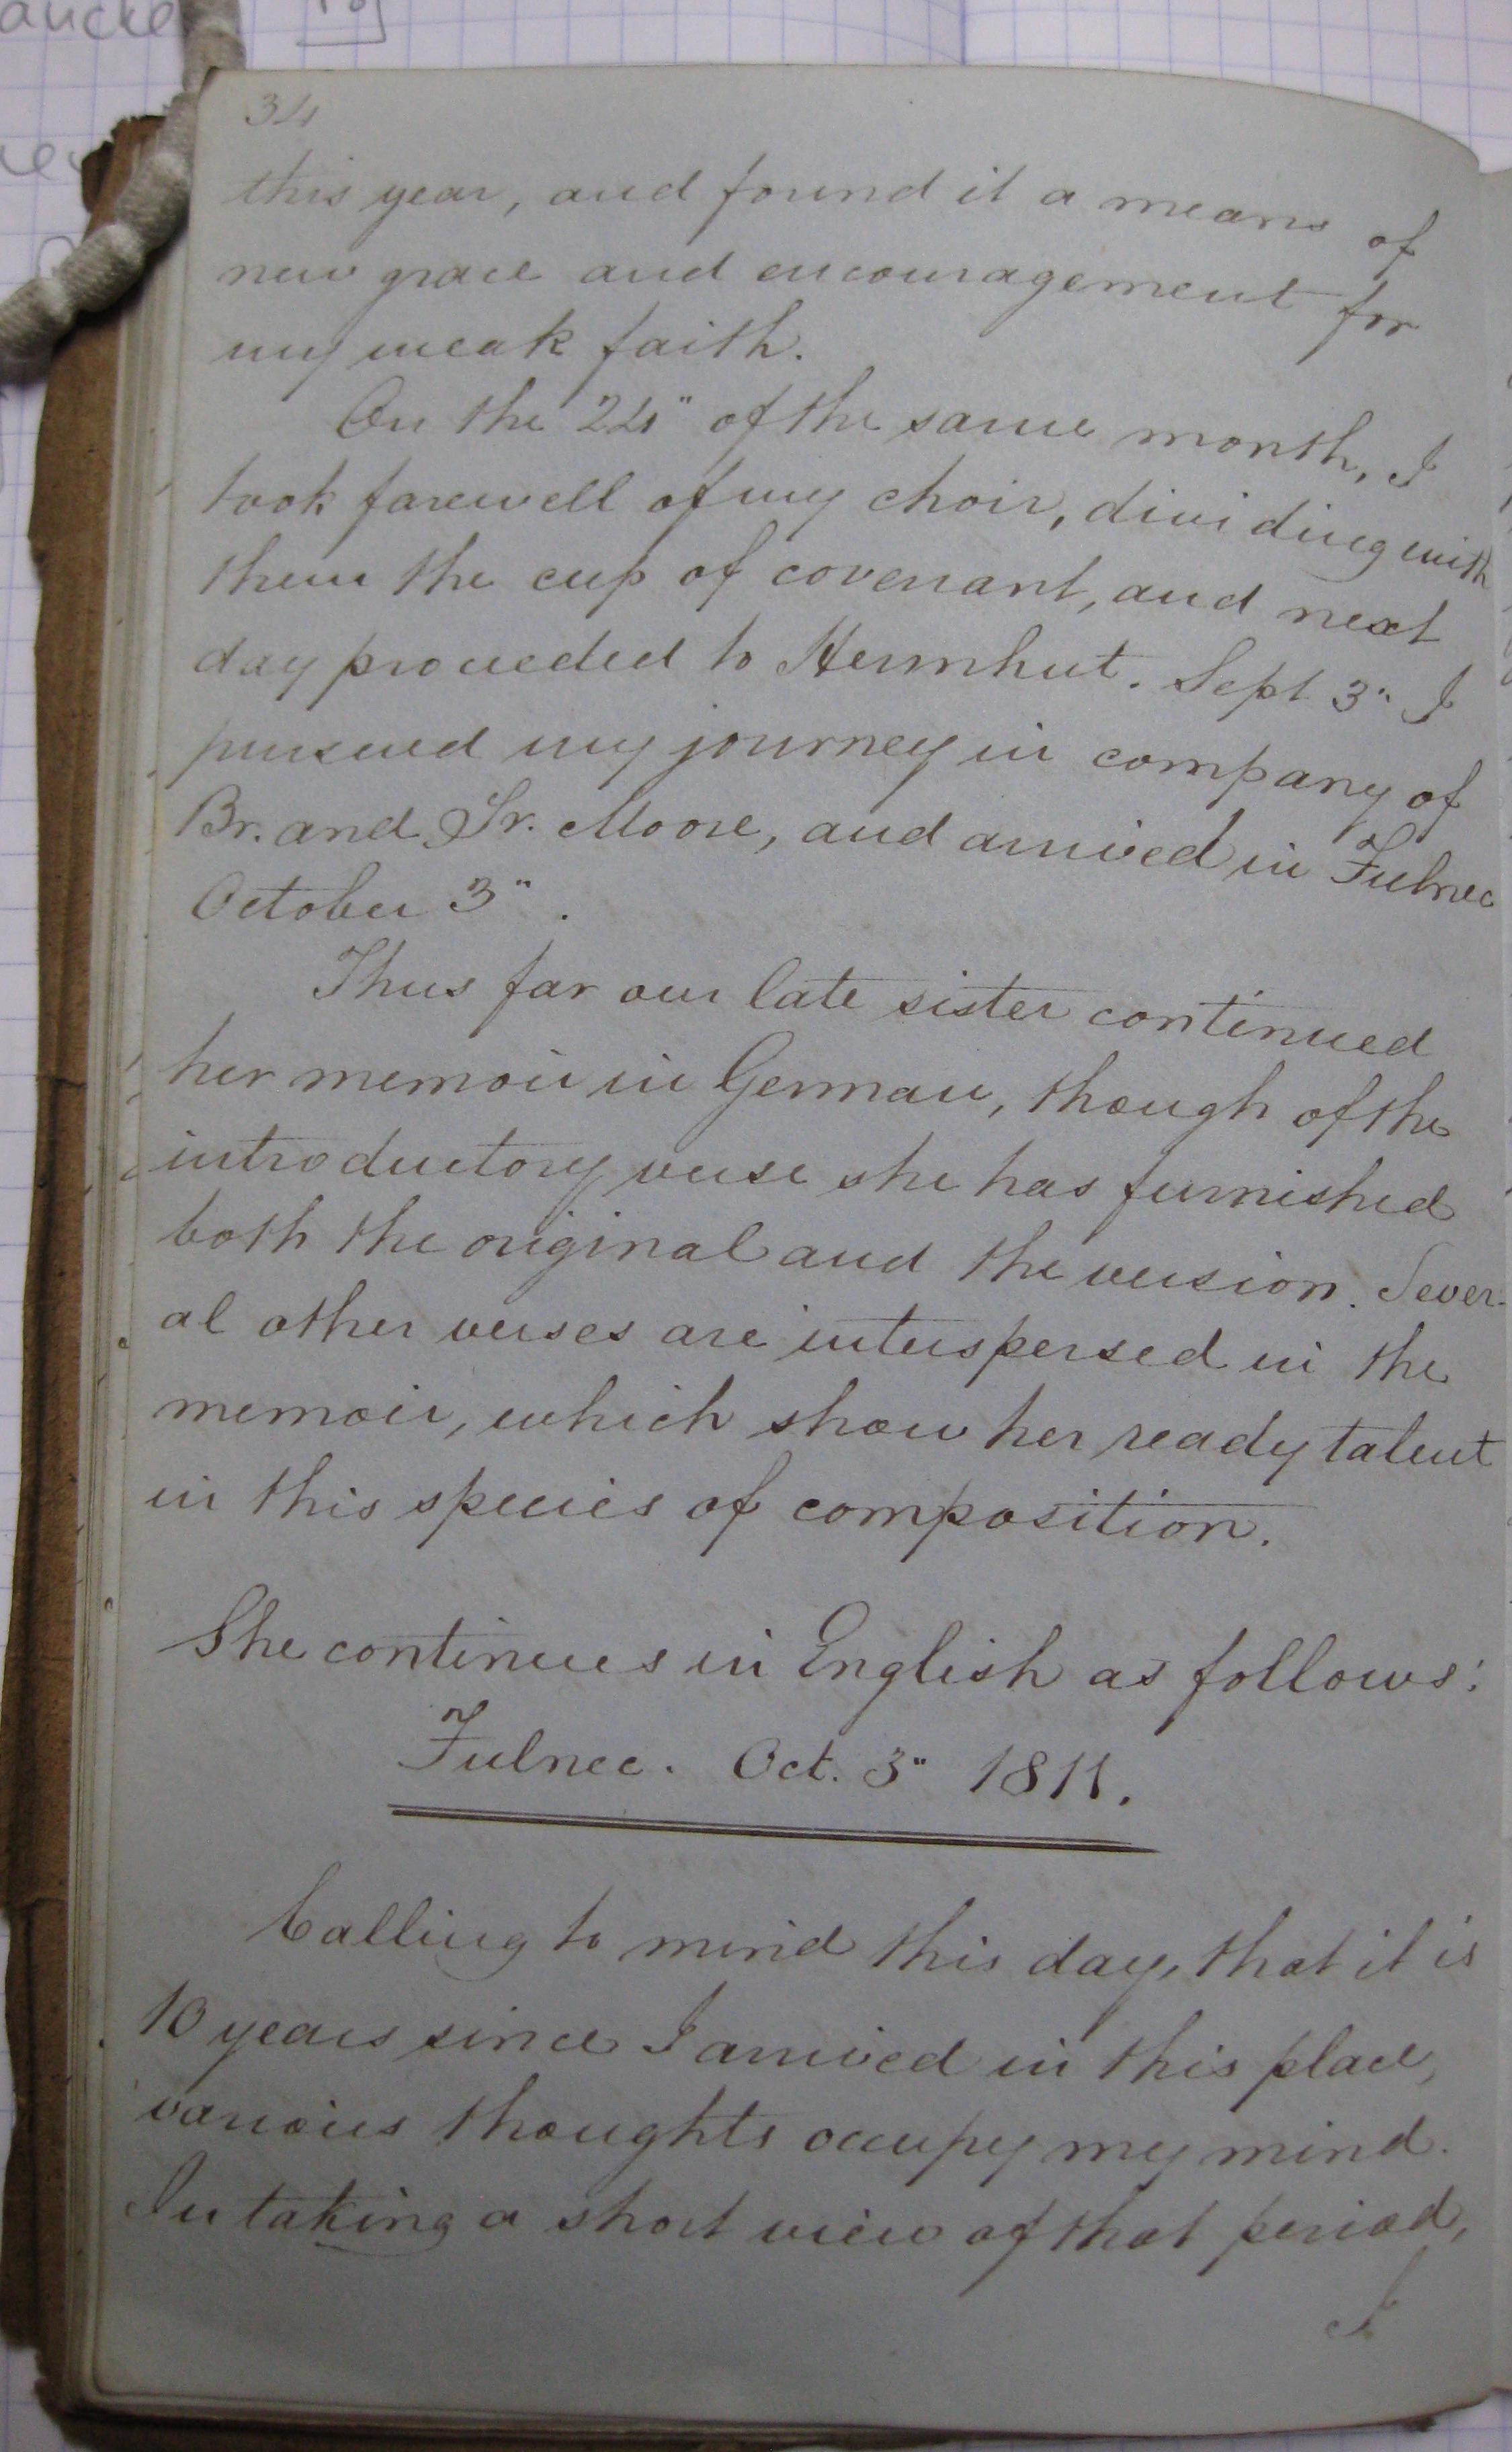 34
this year, and found it a means of
new grace and encouragement for
my weak faith.
On the 24" of the same month, I
took farewell of my choir, dividing with
them the cup of covenant, and next
day proceeded to Herrnhut. Sept 3" I
pursued my journey in company of
Br. and Sr. Moore, and arrived in Fulnec
October 3".
Thus far our late sister continued
her memoir in German, though of the
introductory verse she has furnished
both the original and the version. Sever-
al other verses are interspersed in the
memoir, which show her ready talent
in this species of composition.
She continues in English as follows:
Fulnec. Oct. 3" 1811.
Calling to mind this day, that it is
10 years since I arrived in this place,
various thoughts occupy my mind.
In taking a short view of that period,
I